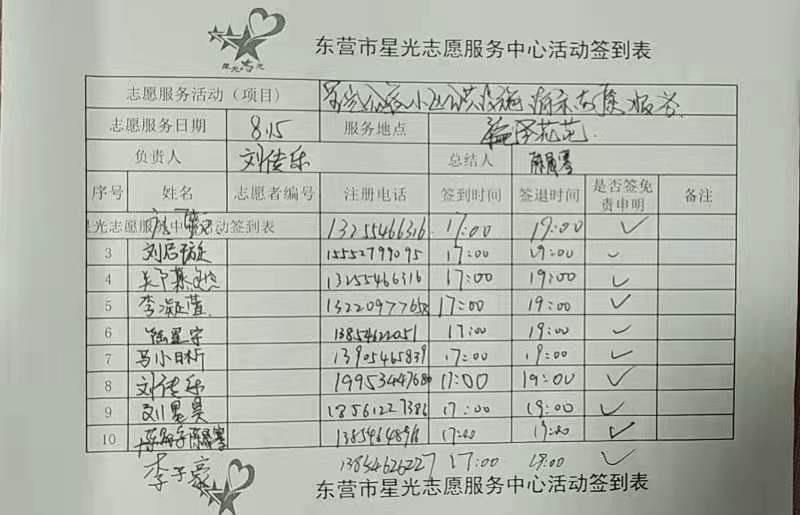 星光志愿
东营市星光志愿服务中心活动签到表
志愿服务活动（项目）
志愿服务日期 8.15 服务地点
负责人 刘佳乐 总结人
序号 姓名 志愿者编号 注册电话 签到时间 签退时间 是否签免责申明 备注
星光志愿服务中 活动签到表 13255466316 17:00 19:00 ✓
3 15552799095 17:00 19:00 ✓
4 13255466316 17:00 19:00 ✓
5 李凝萱 17:00 19:00 ✓
6 陆星宇 13854622051 17:00 19:00 ✓
7 马小日析 13905465839 17:00 19:00 ✓
8 刘佳乐 19953447680 17:00 19:00 ✓
9 刘昱昊 18561227386 17:00 19:00 ✓
10 17:00 19:00 ✓
李子豪 13854626227 17:00 19:00 ✓
东营市星光志愿服务中心活动签到表